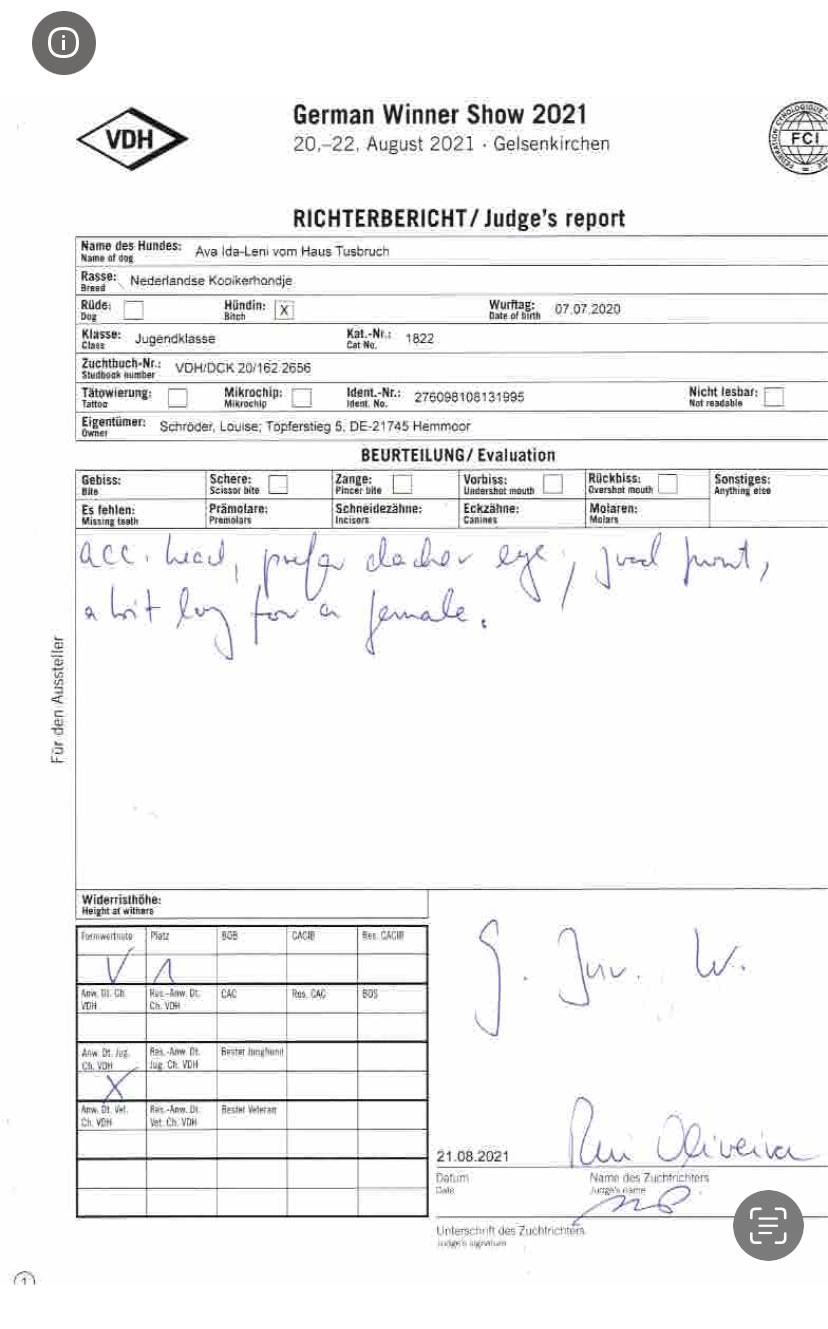 VDH
German Winner Show 2021
20.–22. August 2021 · Gelsenkirchen
FCI
RICHTERBERICHT / Judge's report
Name des Hundes: Ava Ida-Leni vom Haus Tusbruch
Name of dog
Rasse: Nederlandse Kooikerhondje
Breed
Rüde: Hündin: X Wurftag: 07.07.2020
Dog Bitch Date of birth
Klasse: Jugendklasse Kat.-Nr.: 1822
Class Cat No.
Zuchtbuch-Nr.: VDH/DCK 20/162 2656
Studbook number
Tätowierung: Mikrochip: Ident.-Nr.: 276098108131995 Nicht lesbar:
Tattoo Mikrochip Ident. No. Not readable
Eigentümer: Schröder, Louise; Töpferstieg 5, DE-21745 Hemmoor
Owner
BEURTEILUNG / Evaluation
Gebiss: Schere: Zange: Vorbiss: Rückbiss: Sonstiges:
Bite Scissor bite Pincer bite Undershot mouth Overshot mouth Anything else
Es fehlen: Prämolare: Schneidezähne: Eckzähne: Molaren:
Missing teeth Premolars Incisors Canines Molars
acc. head, prefer darker eye, good front,
a bit long for a female.
Für den Aussteller
Widerristhöhe:
Height at withers
Formwertnote Platz BOB CACIB Res. CACIB
V 1
Anw. Dt. Ch. Res.-Anw. Dt. CAC Res. CAC BOS
VDH Ch. VDH
Anw. Dt. Jug. Res.-Anw. Dt. Bester Junghund
Ch. VDH Jug. Ch. VDH
X
Anw. Dt. Vet. Res.-Anw. Dt. Bester Veteran
Ch. VDH Vet. Ch. VDH
G. Juv. W.
21.08.2021 Rui Oliveira
Datum Name des Zuchtrichters
Date Judge's name
Unterschrift des Zuchtrichters
Judge's signature
1